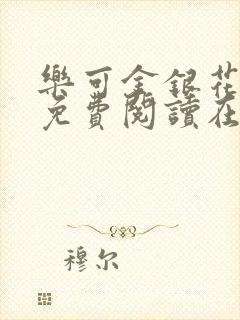 樂可金銀花
免費閱讀在
穆尔